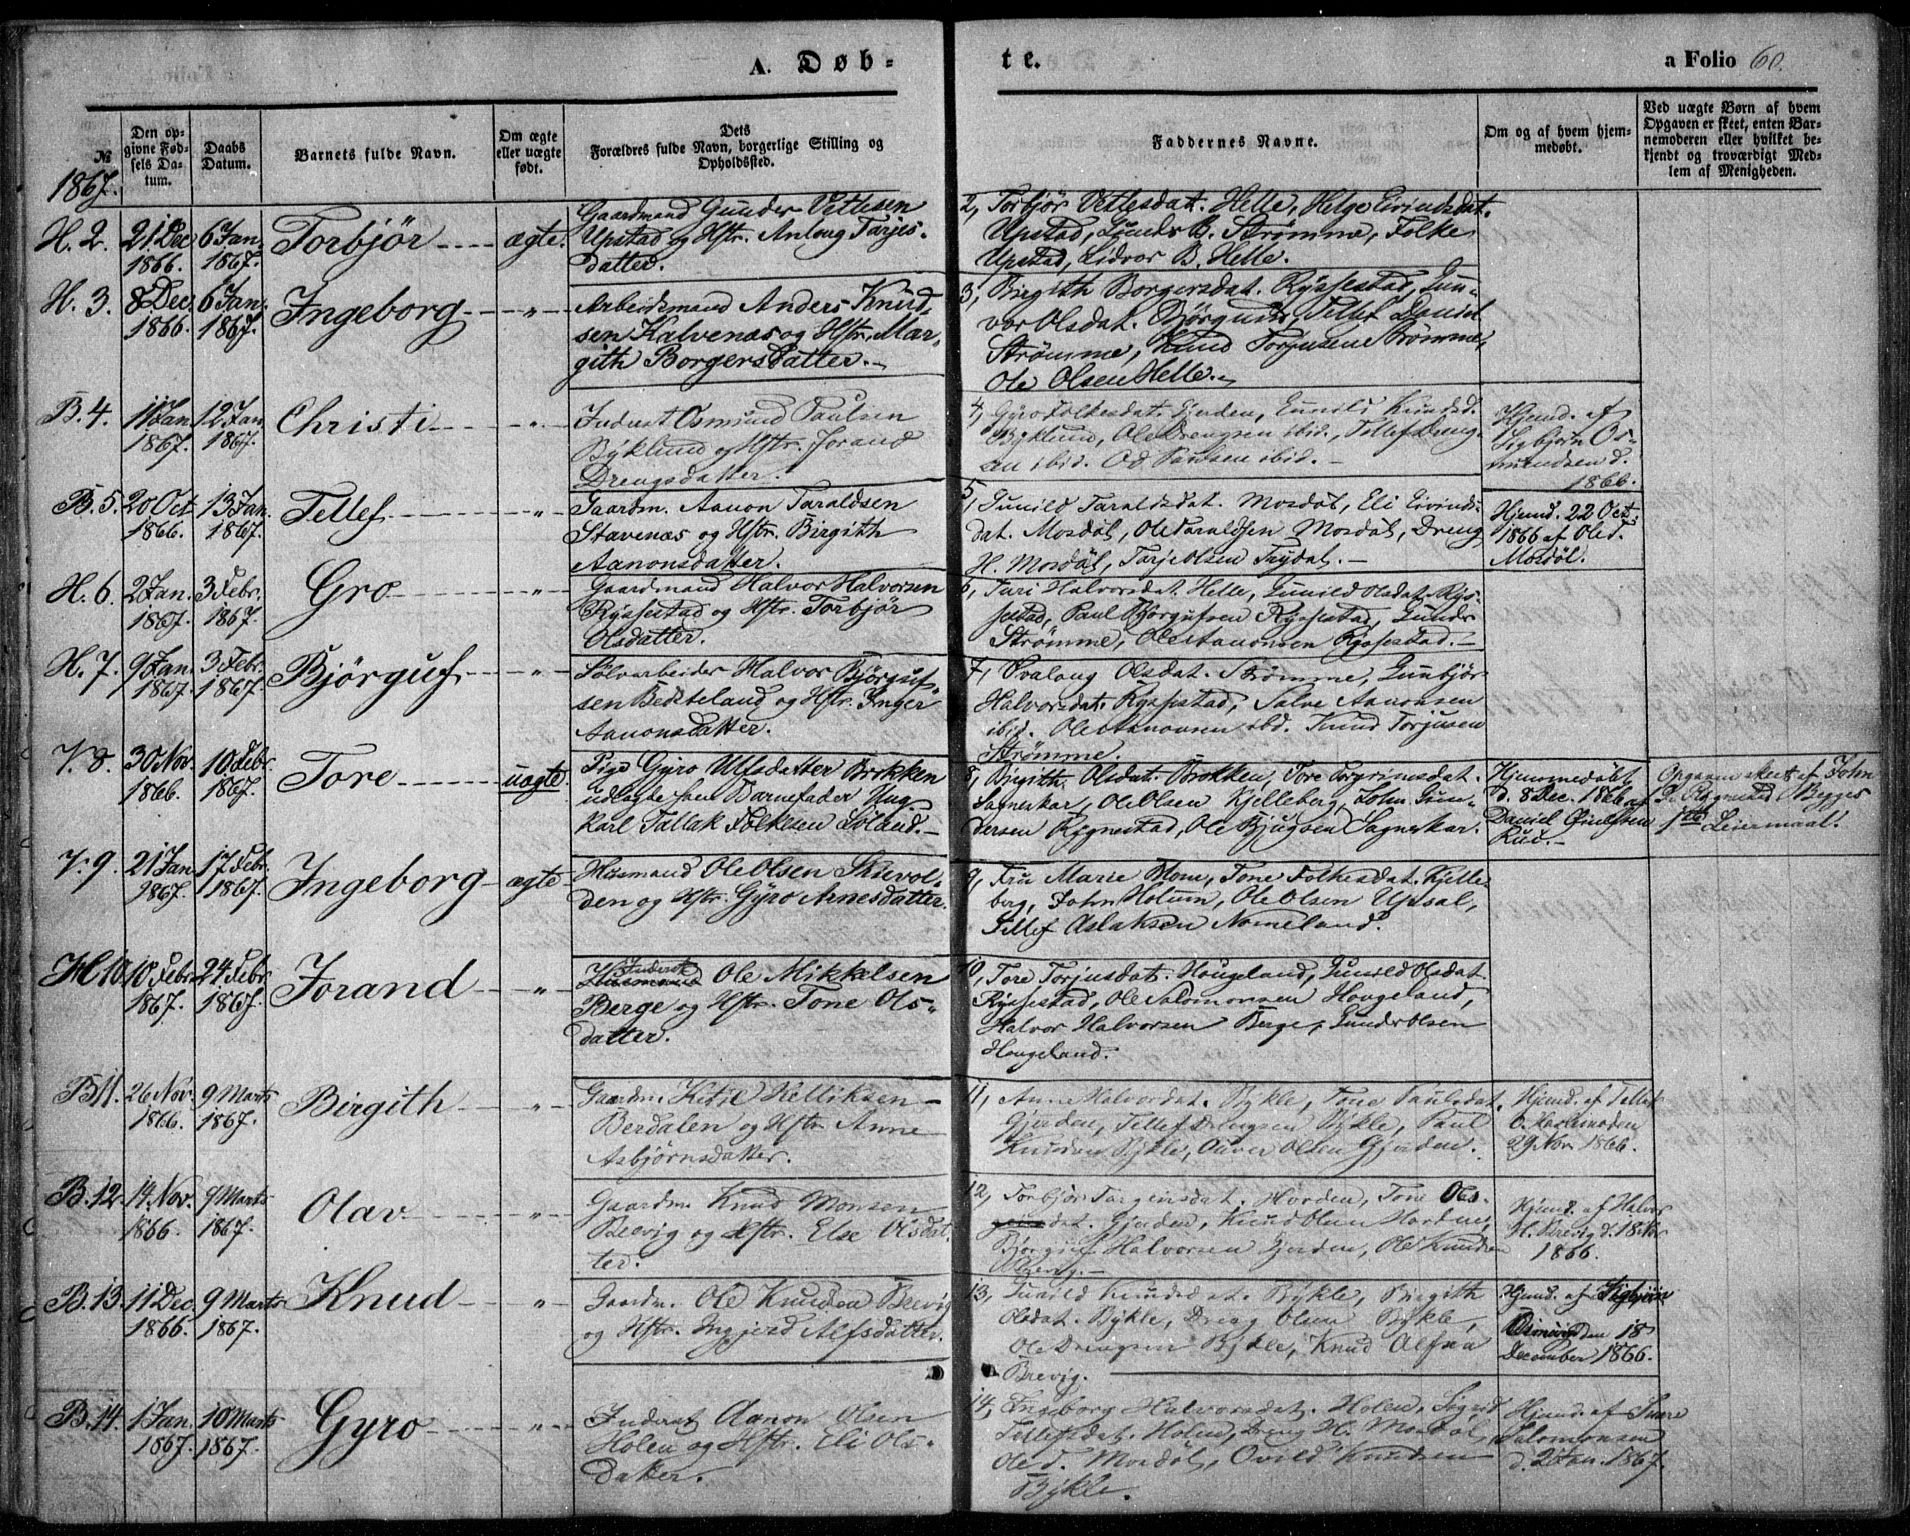 A. Døb-
te.
a Folio 60.
№
1867.
Den op-
givne Fød-
sels Da-
tum.
Daabs
Datum.
Barnets fulde Navn.
Om ægte
eller uægte
født.
Dets
Forældres fulde Navn, borgerlige Stilling og
Opholdssted.
Faddernes Navne.
Om og af hvem hjem-
medøbt.
Ved uægte Børn af hvem
Opgaven er skeet, enten Bar-
nemoderen eller hvilket be-
kjendt og troværdigt Med-
lem af Menigheden.
H. 2. 21 Dec 1866. 6 Jan. 1867. Torbjör ægte.
Gaardmand Gunder Vettesen
Upstad og Hstr. Anlaug Tarjes-
datter.
2, Torbjör Vetlesdat. Helle, Helge Eivindsdat.
Upstad, Gunder B. Strømme, Folke
Upstad, Lidvor B. Helle.
H. 3. 8 Dec. 1866. 6 Jan. 1867. Ingeborg "
Arbeidsmand Anders Knud-
sen Kalvenæs og Hstr. Mar-
gith Borgersdatter.
3, Birgith Borgersdat. Ryssestad, Gun-
vor Olsdat. Tellef Daniel
Strømme, Knud Torjusen Strømme,
Ole Olsen Helle.
B. 4. 11 Jan 1867. 12 Jan. 1867. Christi "
Inderst Osmund Paulsen
Býklund og Hstr. Jorand
Drengsdatter.
4, Gyro Folkesdat. Gjerden, Gunild Knudsd.
Býklund, Ole Drengsen ibid., Tellef Dreng-
sen ibid. Od Paulsen ibid.
Hjemd. af
Sigbjørn Os-
mundsen d.
1866.
B. 5. 20 Oct 1866. 13 Jan. 1867. Tellef "
Gaardm. Aanon Taraldsen
Stavenæs og Hstr. Birgith
Aanonsdatter.
5, Gunild Taraldsdat. Mosdøl, Eli Eivinds-
dat. Mosdøl, Ole Taraldsen Mosdøl, Dreng
H. Mosdøl, Tarje Olsen Trydal.
Hjemd. 22 Oct.
1866 af Ole T.
Mosdøl.
H. 6. 2 Jan. 1867. 3 Febr. 1867. Gro "
Gaardmand Halvor Halvorsen
Ryssestad og Hstr. Torbjör
Olsdatter.
6, Turi Halvorsdat. Helle, Gunild Olsdat. Rys-
sestad, Paul Bjørgufsen Ryssestad, Gunder
Strømme, Ole Aanonsen Ryssestad.
H. 7. 9 Jan. 1867. 3 Febr. 1867. Bjørguf "
Sølvarbeider Halvor Bjørguf-
sen Besteland og Hstr. Inger
Aanonsdatter.
7, Svalaug Olsdat. Strømme, Gunbjør
Halvorsdat. Ryssestad, Salve Aanonsen
ibid. Ole Aanonsen ibid. Knud Torjusen
Strømme.
V. 8. 30 Nov. 1866. 10 Febr. 1867. Tore uægte
Pige Gyro Ulfsdatter Brokken
udlagte som Barnefader Ung-
karl Tallak Folkesen Løland.
8, Birgith Olsdat. Brokken, Tore Torgrimsdat.
Sagneskar, Ole Olsen Kjelleberg, John Gun-
dersen Rygnestad, Ole Bjugsen Sagneskar.
Hjemmedøbt
d. 8 Dec. 1866 af
Daniel
Rud.
Opgaven skeet af John
Rygnestad Begges
1ste Leiermaal.
V. 9. 21 Jan. 1867. 17 Febr. 1867. Ingeborg ægte
Husmand Ole Olsen Skievol-
den og Hstr. Gyro Arnesdatter.
9, Fru Marie Mom, Tone Folkesdat. Kjelle-
berg, John Holum, Ole Olsen Upsal,
Tellef Aslaksen Nomeland.
H 10. 10 Febr. 1867. 24 Febr. 1867. Jorand "
Husmand Inderst Ole Mikkelsen
Berge og Hstr. Tone Ols-
datter.
10, Tore Torjusdat. Hougeland, Gunild Olsdat.
Ryssestad, Ole Salomonsen Hougeland,
Halvor Halvorsen Berge, Gunder Olsen
Hougeland.
B 11. 26 Nov. 1866. 9 Marts 1867. Birgith "
Gaardm. Ketil Kelliksen
Berdalen og Hstr. Anne
Asbjørnsdatter.
11, Anne Halvorsdat. Bykle, Tone Paulsdat.
Gjerden, Tellef Drengsen Bykle, Paul
Knudsen Bykle, Oliver Olsen Gjerden.
Hjemd. af Tellef
29 Nov. 1866.
B. 12. 14. Nov. 1866. 9 Marts 1867. Olav "
Gaardm. Knud Monsen
Breivig og Hstr. Else Olsdat-
ter.
12, Torbjør Targeirsdat. Horden, Tone Ols-
dat. Gjerden, Knud Olsen Horden,
Bjørguf Halvorsen Gjerden, Ole Knudsen
Brevig.
Hjemd. af Halvor
H. Brevig d. 18 Nov
1866.
B. 13. 11 Dec. 1866. 9 Marts 1867. Knud "
Gaardm. Ole Knudsen Brevig
og Hstr. Ingjerd Alfsdatter.
13, Gunild Knudsdat. Bykle, Birgith
Olsdat. Bykle, Dreng Olsen Bykle,
Ole Drengsen Bykle, Knud Alfsen
Brevig.
Hjemd. af Sigbjørn
Osmunds den 18
December 1866.
B. 14. 1 Jan. 1867. 10 Marts 1867. Gyro "
Inderst Aanon Olsen
Holen og Hstr. Eli Ols-
datter.
14, Ingeborg Halvorsdat. Holen, Sigrid
Tellefsdat. Holen, Dreng H. Mosdøl,
Ole T. Mosdøl, Ovild Knudsen
Bykle.
Hjemd. af Snare
Salomonsen
d. 2 Jan. 1867.